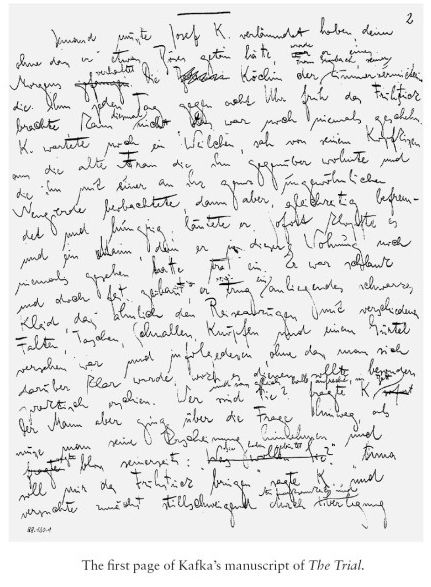 2
Jemand musste Josef K. verläumdet haben denn
ohne dass er etwas Böses getan hätte, wurde er eines
Frau Grubach, seiner
Morgens verhaftet. Die Köchin der Zimmervermieterin
die ihm jeden Tag gegen acht Uhr früh das Frühstück
brachte kam diesmal nicht. Das war noch niemals geschehn.
K. wartete noch ein Weilchen, sah von seinem Kopfkissen
aus die alte Frau die ihm gegenüber wohnte und
die ihn mit einer an ihr ganz ungewöhnlichen
Neugierde beobachtete, dann aber, gleichzeitig befrem-
det und hungrig, läutete er. Sofort klopfte es
und ein Mann, den er in dieser Wohnung noch
niemals gesehen hatte trat ein. Er war schlank
und doch fest gebaut, er trug ein anliegendes schwarzes
Kleid, das ähnlich den Reiseanzügen mit verschiedenen
Falten, Taschen, Schnallen, Knöpfen und einem Gürtel
versehen war und infolgedessen, ohne dass man sich
darüber klar wurde, wozu es dienen sollte, besonders
praktisch erschien. "Wer sind Sie?" fragte K.
und sass gleich halb aufrecht im Bett
Der Mann aber ging über die Frage hinweg als
müsse man seine Erscheinung hinnehmen und
sagte bloss seinerseits: "Sie haben geläutet?" "Anna
soll mir das Frühstück bringen" sagte K. und
versuchte zunächst stillschweigend durch Aufmerksamkeit und Überlegung
The first page of Kafka's manuscript of The Trial.